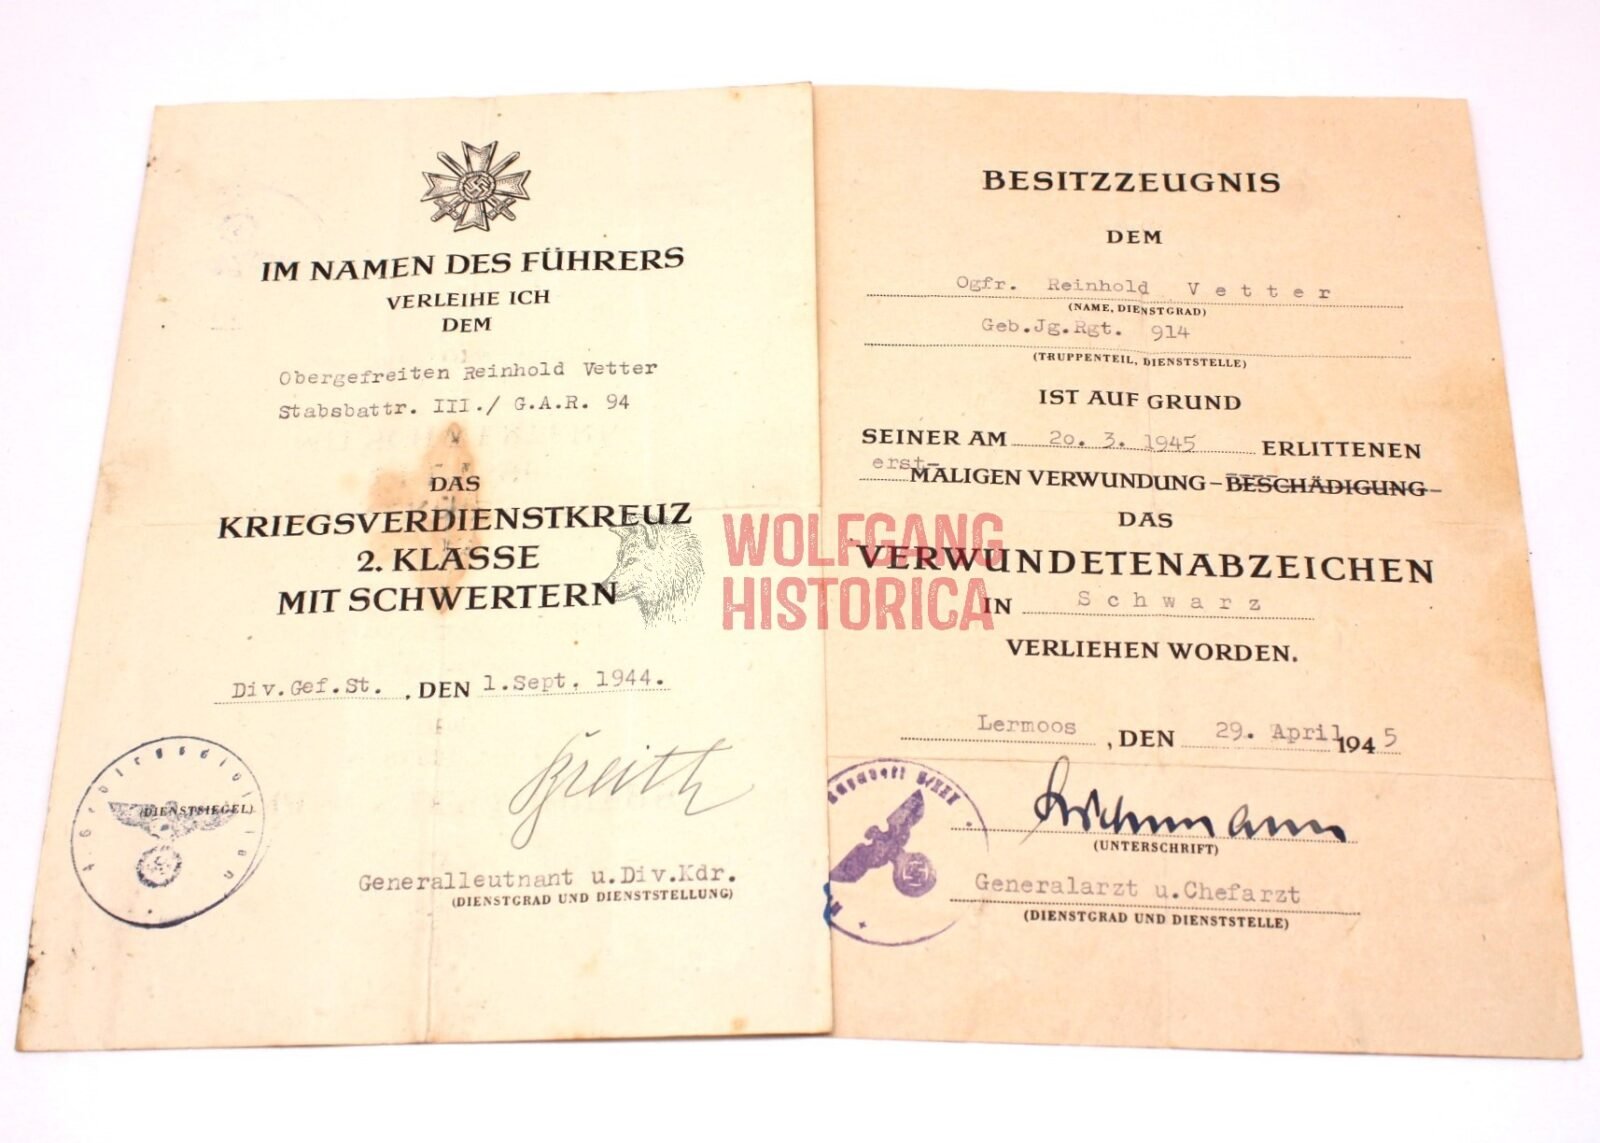 IM NAMEN DES FÜHRERS
VERLEIHE ICH
DEM
Obergefreiten Reinhold Vetter
Stabsbattr. III./ G.A.R. 94
DAS
KRIEGSVERDIENSTKREUZ
2. KLASSE
MIT SCHWERTERN
Div.Gef.St. , DEN 1.Sept. 1944.
(DIENSTSIEGEL)
Kreith
Generalleutnant u.Div.Kdr.
(DIENSTGRAD UND DIENSTSTELLUNG)
BESITZZEUGNIS
DEM
Ogfr. Reinhold Vetter
(NAME, DIENSTGRAD)
Geb.Jg.Rgt. 914
(TRUPPENTEIL, DIENSTSTELLE)
IST AUF GRUND
SEINER AM 20. 3. 1945 ERLITTENEN
erst-MALIGEN VERWUNDUNG – BESCHÄDIGUNG –
DAS
VERWUNDETENABZEICHEN
IN Schwarz
VERLIEHEN WORDEN.
Lermoos , DEN 29. April 1945
(UNTERSCHRIFT)
Generalarzt u.Chefarzt
(DIENSTGRAD UND DIENSTSTELLE)
WOLFGANG
HISTORICA